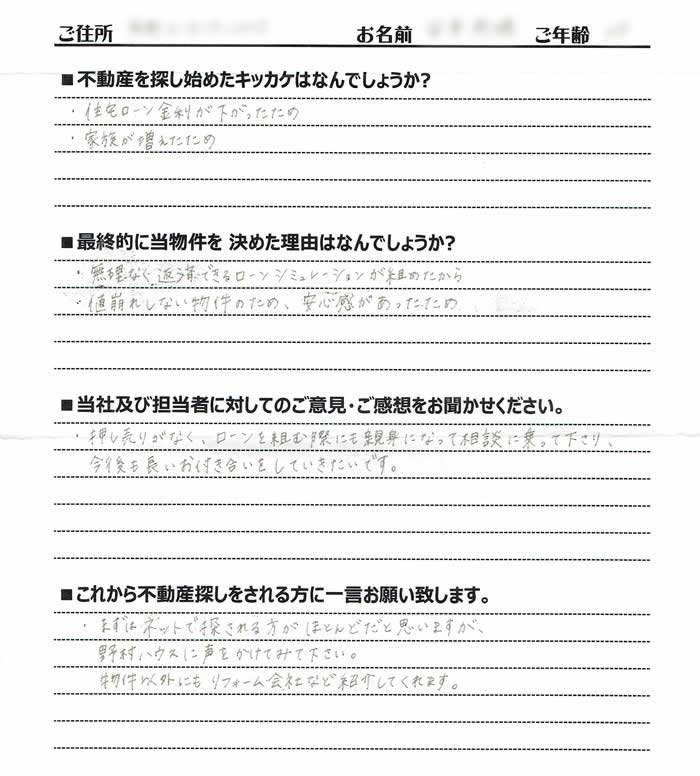 ご住所 お名前 ご年齢
■不動産を探し始めたキッカケはなんでしょうか?
・住宅ローン金利が下がったため
・家族が増えたため
■最終的に当物件を 決めた理由はなんでしょうか?
・無理なく返済できるローンシミュレーションが組めたから
・値崩れしない物件のため、安心感があったため
■当社及び担当者に対してのご意見・ご感想をお聞かせください。
・押し売りがなく、ローンを組む際にも親身になって相談に乗って下さり、
今後も長いお付き合いをしていきたいです。
■これから不動産探しをされる方に一言お願い致します。
・まずはネットで探される方がほとんどだと思いますが、
野村ハウスに声をかけてみて下さい。
物件以外にもリフォーム会社など紹介してくれます。